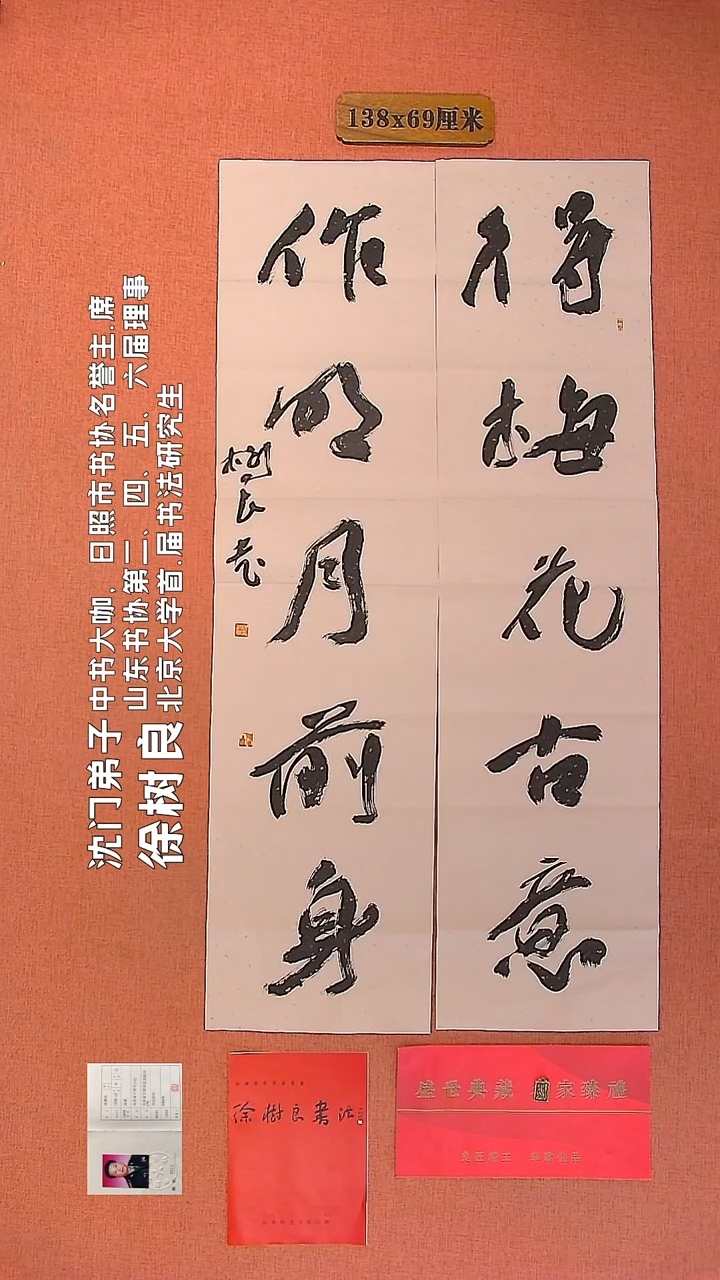 138x69厘米
得梅花古意
作明月前身
樹良書
沈门弟子
徐树良
中书大咖，日照市书协名誉主席
山东书协第三、四、五、六届理事
北京大学首届书法研究生
徐樹良書法
盛世典藏 國家臻禮